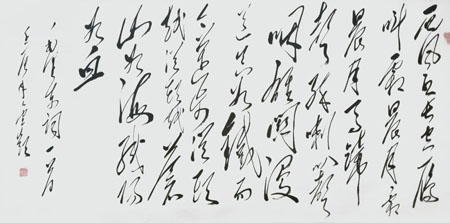 西风烈长空雁
叫霜晨月霜
晨月马蹄
声碎喇叭声
咽雄关漫
道真如鐵而
今迈步从头
越从头越苍
山如海残阳
如血
毛泽东词一首